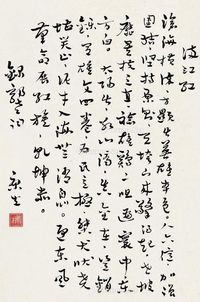 满江红
沧海横流方显出英雄本色人六億加强
团结坚持原則天垮下来擎得起世披
靡矣扶之直聽雄鷄一唱遍寰中東
方白太陽出冰山滴真金在豈銷
鑠有雄文四卷為民立極桀犬吠堯
堪笑止泥牛入海無消息迎東風
革命展红旗乾坤赤
錄郭老词
康生